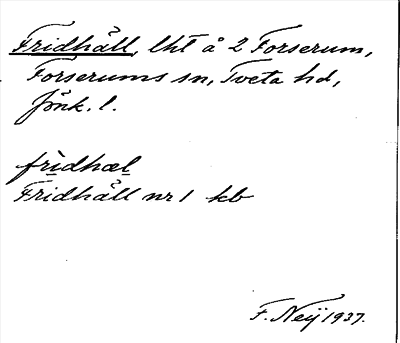 Fridhäll, lht å 2 Forserum,
Forserums sn, Tveta hd,
Jönk. l.
frìdhæl
Fridhäll nr 1 kb
F. Neij 1937.